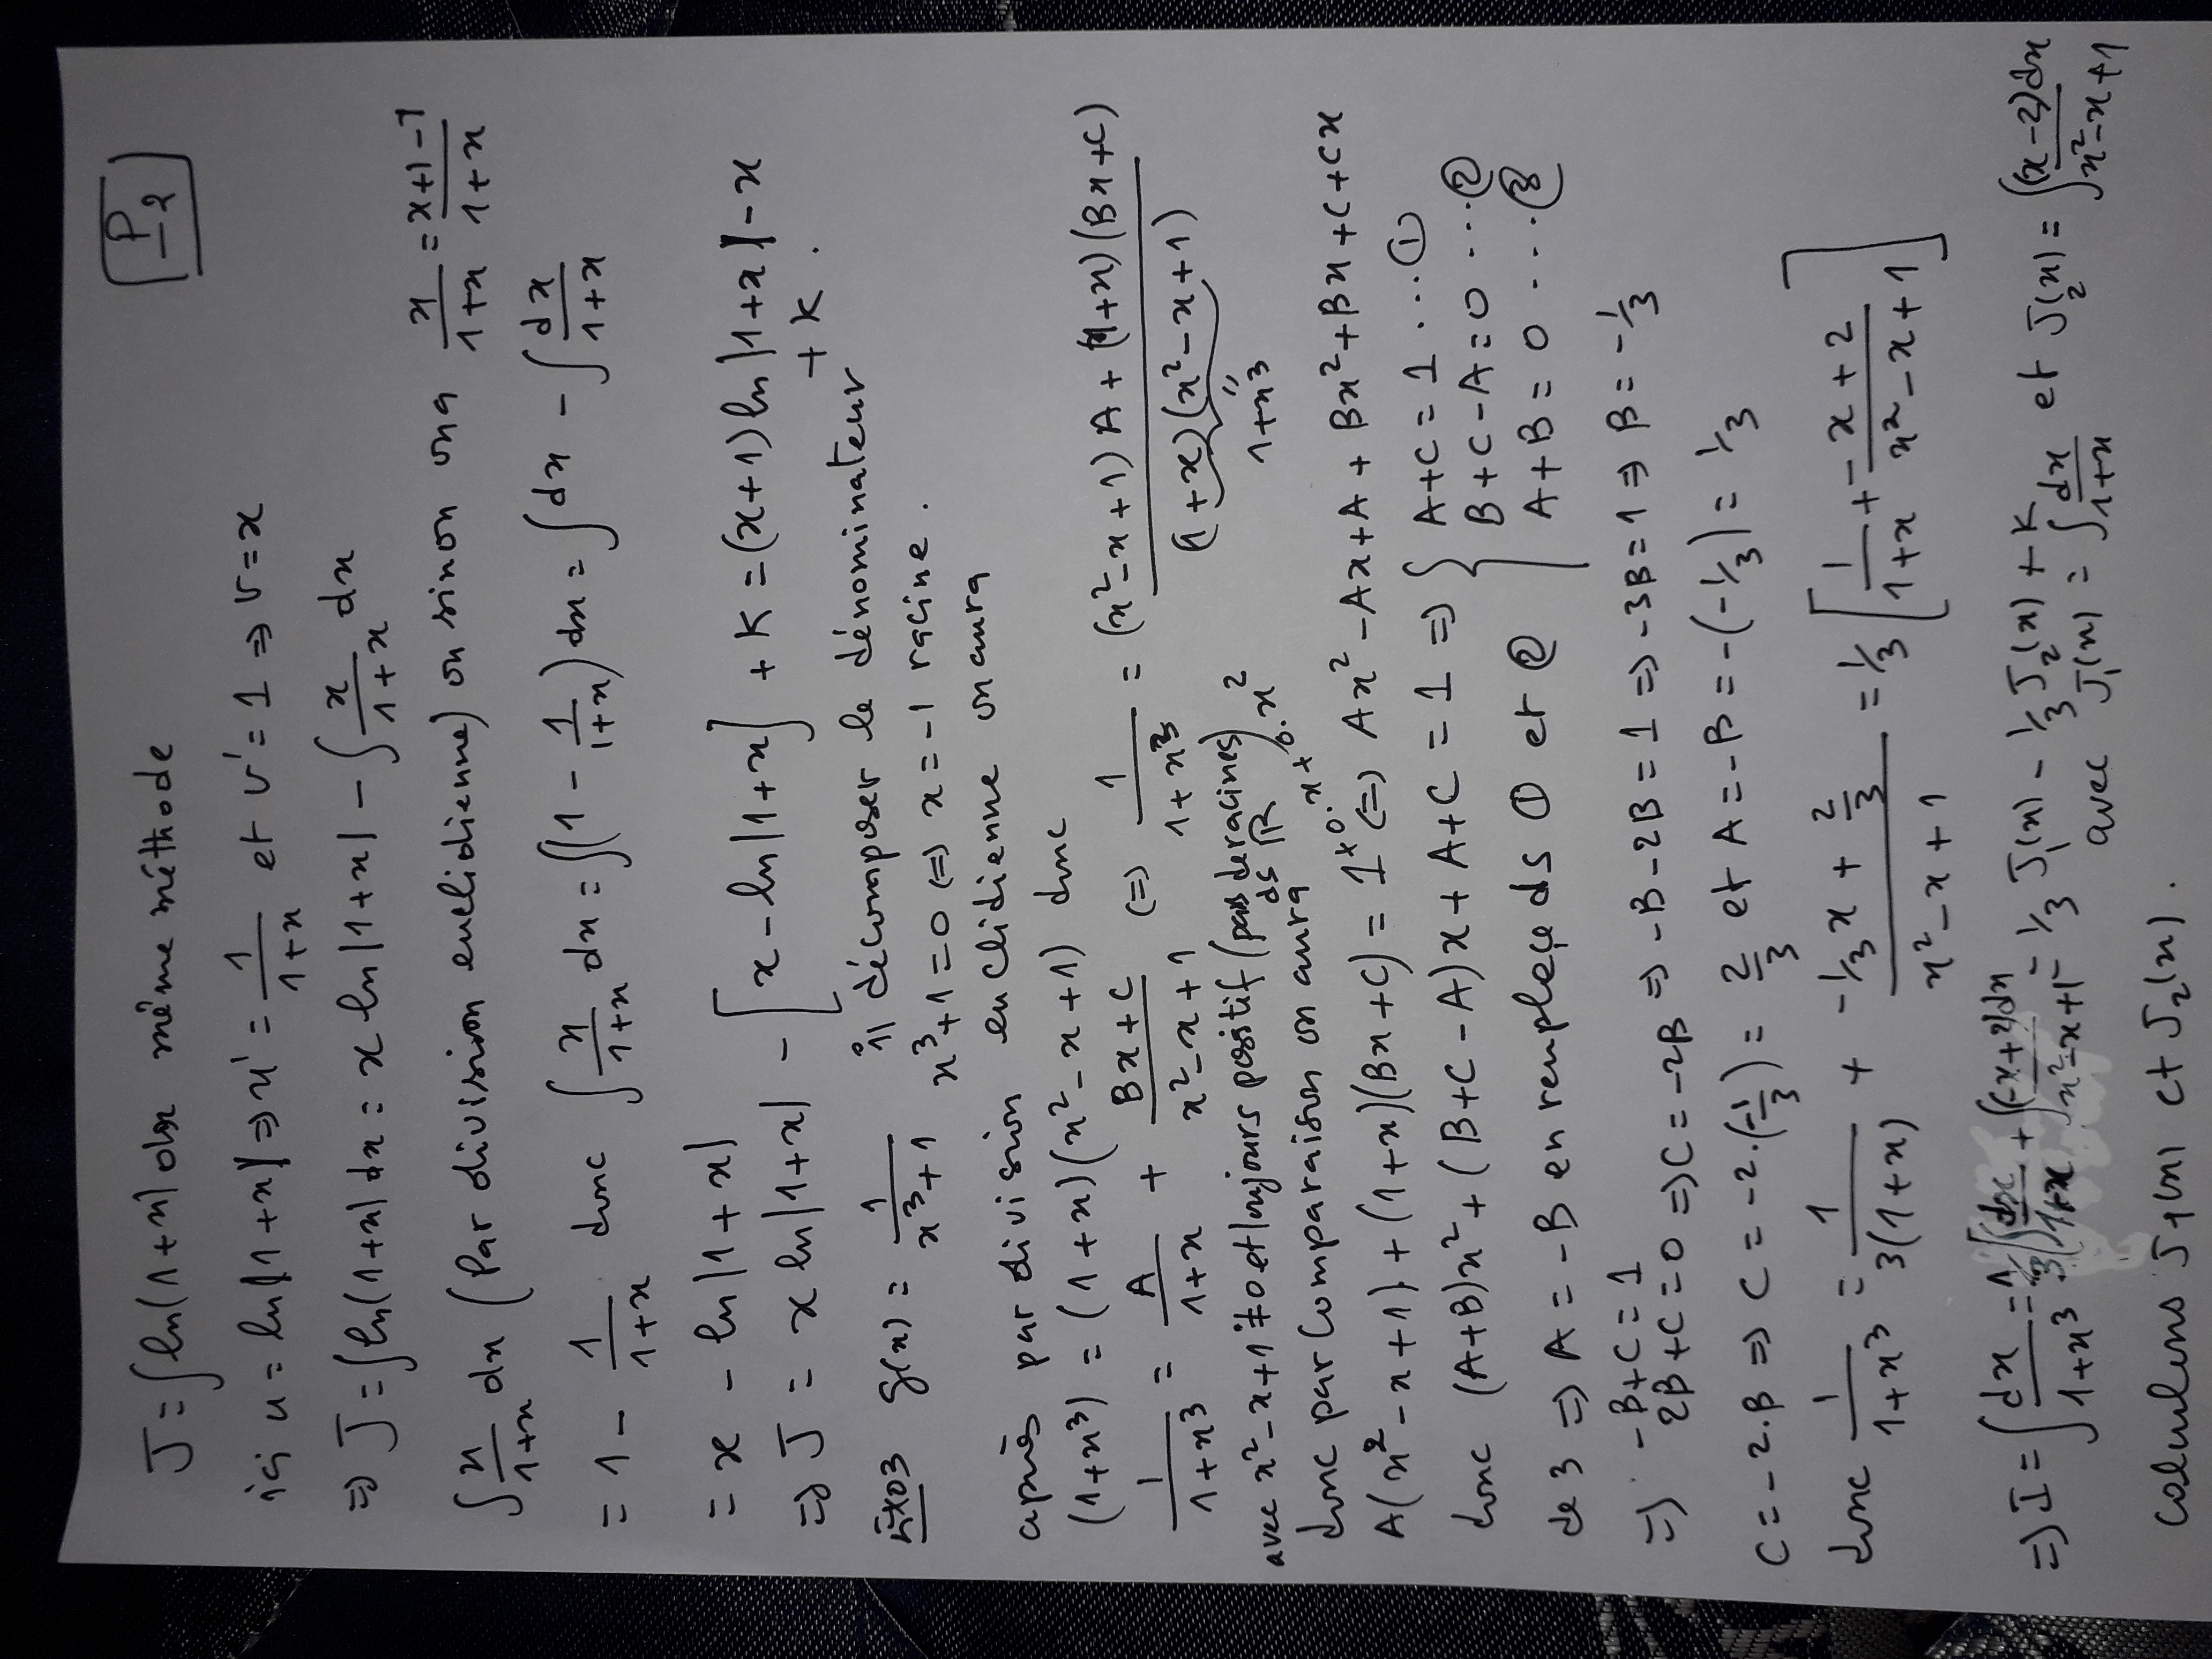 P_2
J = ∫ln(1+x)dx même méthode
ici u = ln|1+x| ⇒ u' = 1/(1+x) et v' = 1 ⇒ v = x
⇒ J = ∫ln(1+x)dx = x ln|1+x| - ∫ x/(1+x) dx
∫ x/(1+x) dx (Par division euclidienne) ou sinon on a x/(1+x) = (x+1-1)/(1+x)
= 1 - 1/(1+x) donc ∫ x/(1+x) dx = ∫(1 - 1/(1+x))dx = ∫dx - ∫ dx/(1+x)
= x - ln|1+x|
⇒ J = x ln|1+x| - [x - ln|1+x|] + K = (x+1)ln|1+x| - x
+ K.
Exo3 g(x) = 1/(x³+1) i) décomposer le dénominateur
x³+1 = 0 ⇔ x = -1 racine.
après par division euclidienne on aura
(1+x³) = (1+x)(x²-x+1) donc
1/(1+x³) = A/(1+x) + (Bx+C)/(x²-x+1) ⇔ 1/(1+x³) = ((x²-x+1)A + (1+x)(Bx+C))/((1+x)(x²-x+1))
" 1+x³
avec x²-x+1 ≠ 0 et toujours positif (pas de racines) ds ℝ
donc par comparaison on aura
A(x²-x+1) + (1+x)(Bx+C) = 1 + 0.x + 0.x² ⇔ Ax² - Ax + A + Bx² + Bx + C + Cx
donc (A+B)x² + (B+C-A)x + A+C = 1 ⇒ { A+C = 1 ...①
B+C-A = 0 ...②
A+B = 0 ....③
de 3 ⇒ A = -B en remplaçe ds ① et ②
⇒ -B+C = 1
2B+C = 0 ⇒ C = -2B ⇒ -B-2B = 1 ⇒ -3B = 1 ⇒ B = -1/3
C = -2.B ⇒ C = -2.(-1/3) = 2/3 et A = -B = -(-1/3) = 1/3
donc 1/(1+x³) = 1/(3(1+x)) + (-1/3 x + 2/3)/(x²-x+1) = 1/3 [1/(1+x) + (-x+2)/(x²-x+1)]
⇒ I = ∫ dx/(1+x³) = 1/3(∫ dx/(1+x) + ∫ (-x+2)dx/(x²-x+1) = 1/3 J₁(x) - 1/3 J₂(x) + K
avec J₁(x) = ∫ dx/(1+x) et J₂(x) = ∫ (x-2)dx/(x²-x+1)
calculons J₁(x) et J₂(x).